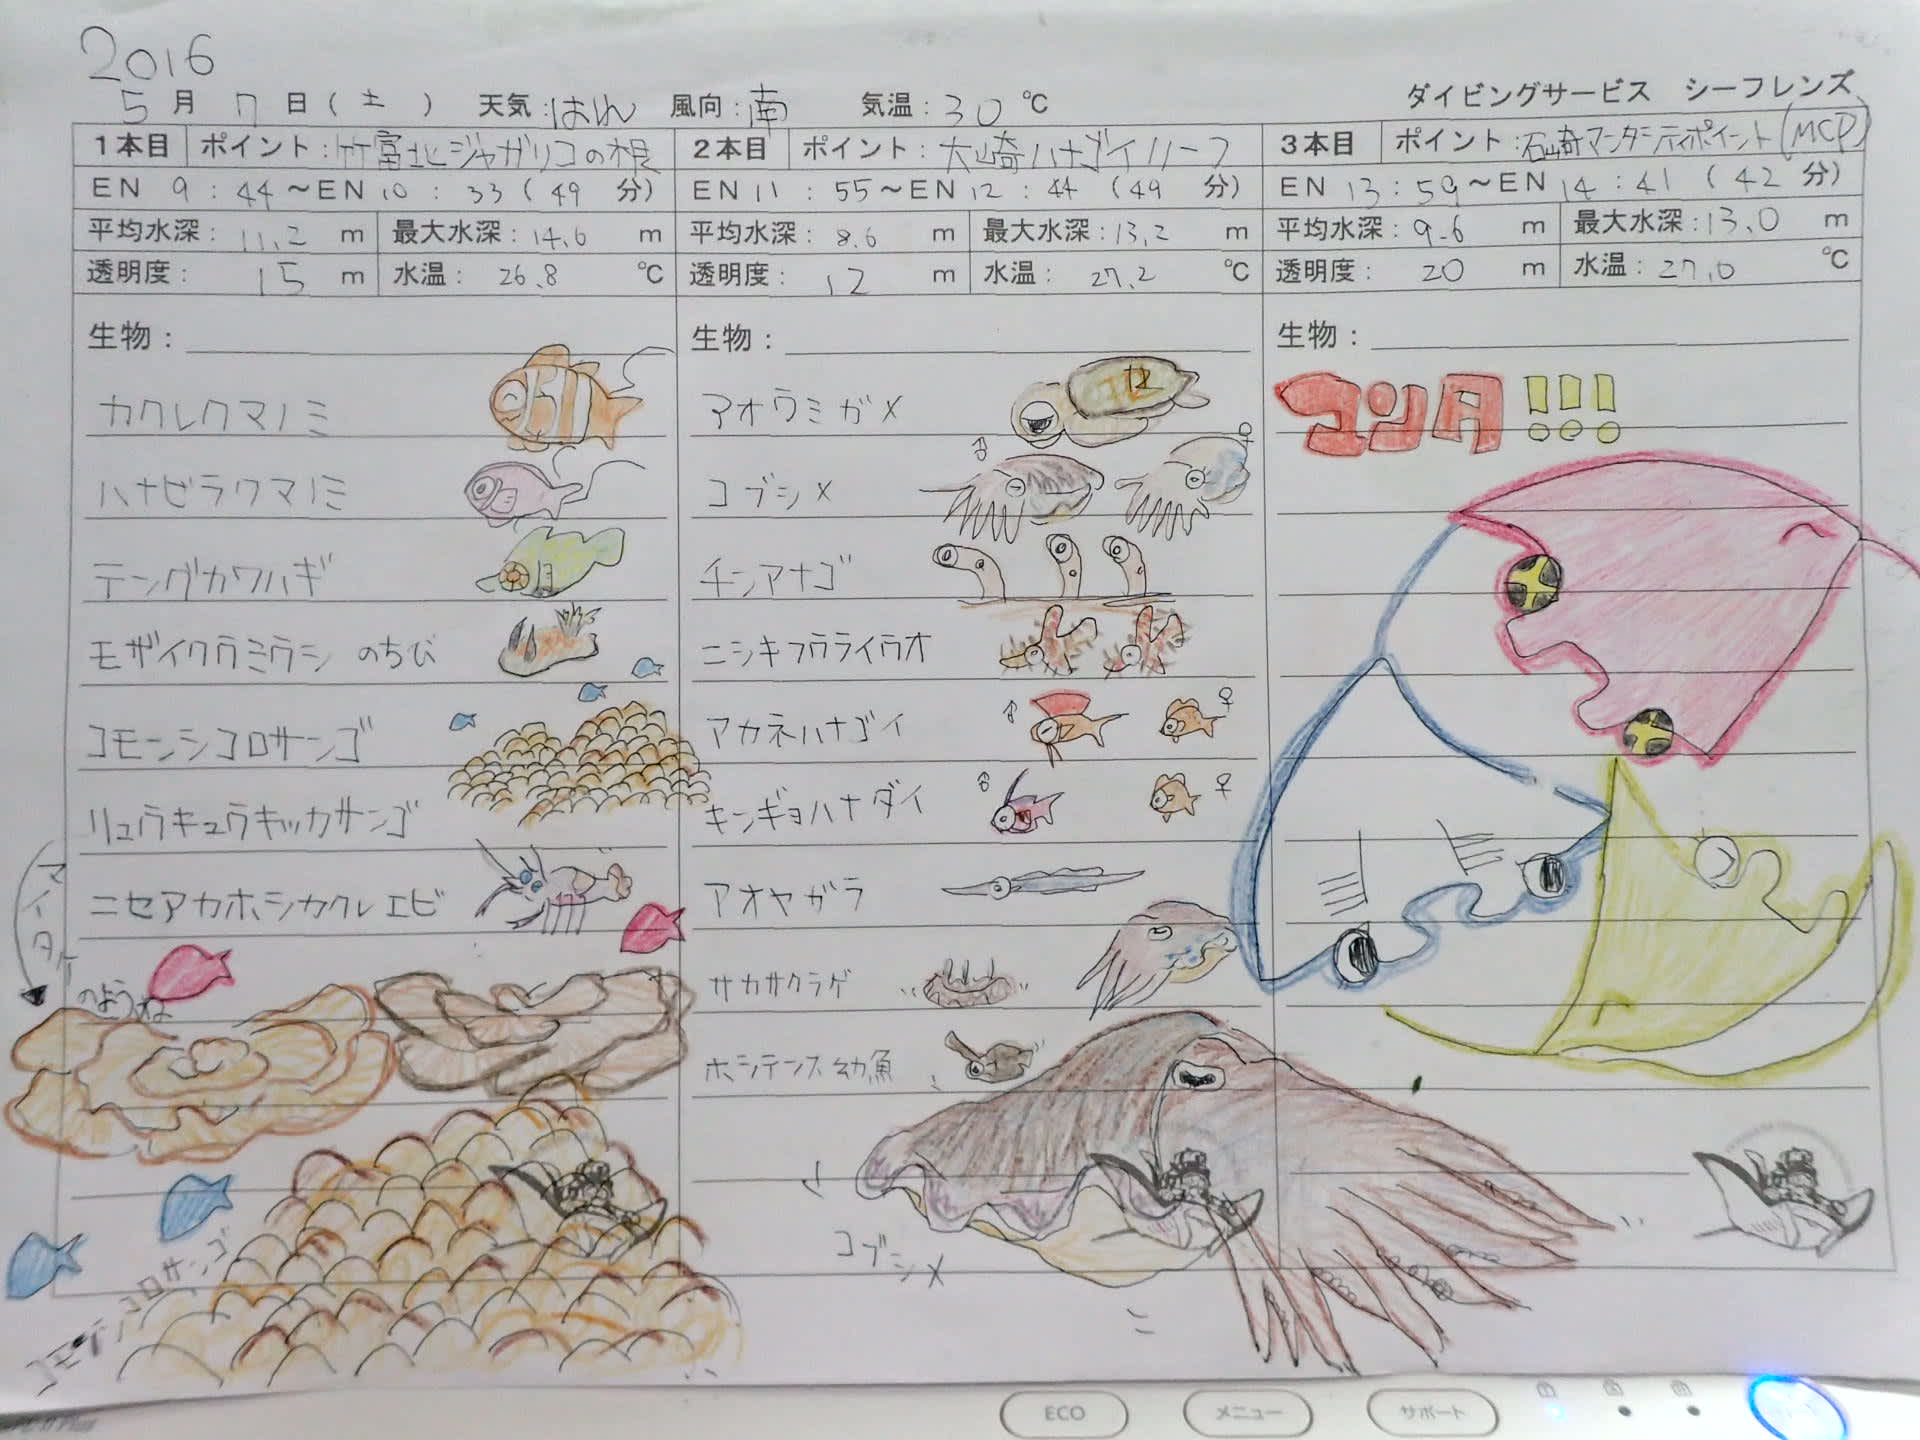 2016
5月7日(土) 天気:はれ 風向:南 気温:30℃
ダイビングサービス シーフレンズ
1本目 ポイント:竹富北ジャガリコの根
EN 9:44~EN 10:33(49分)
平均水深:11.2m 最大水深:14.6m
透明度:15m 水温:26.8℃
生物:
カクレクマノミ
ハナビラクマノミ
テングカワハギ
モザイクウミウシ のちび
コモンシコロサンゴ
リュウキュウキッカサンゴ
ニセアカホシカクレエビ
マイタケ
のような
コモンシコロサンゴ
2本目 ポイント:大崎ハナゴイリーフ
EN 11:55~EN 12:44(49分)
平均水深:8.6m 最大水深:13.2m
透明度:12m 水温:27.2℃
生物:
アオウミガメ
コブシメ ♂ ♀
チンアナゴ
ニシキフウライウオ
アカネハナゴイ ♂ ♀
キンギョハナダイ ♂ ♀
アオヤガラ
サカサクラゲ
ホシテンス幼魚
コブシメ
3本目 ポイント:石崎マンタシティポイント(MCP)
EN 13:59~EN 14:41(42分)
平均水深:9.6m 最大水深:13.0m
透明度:20m 水温:27.0℃
生物:
マンタ!!!
ECO メニュー サポート